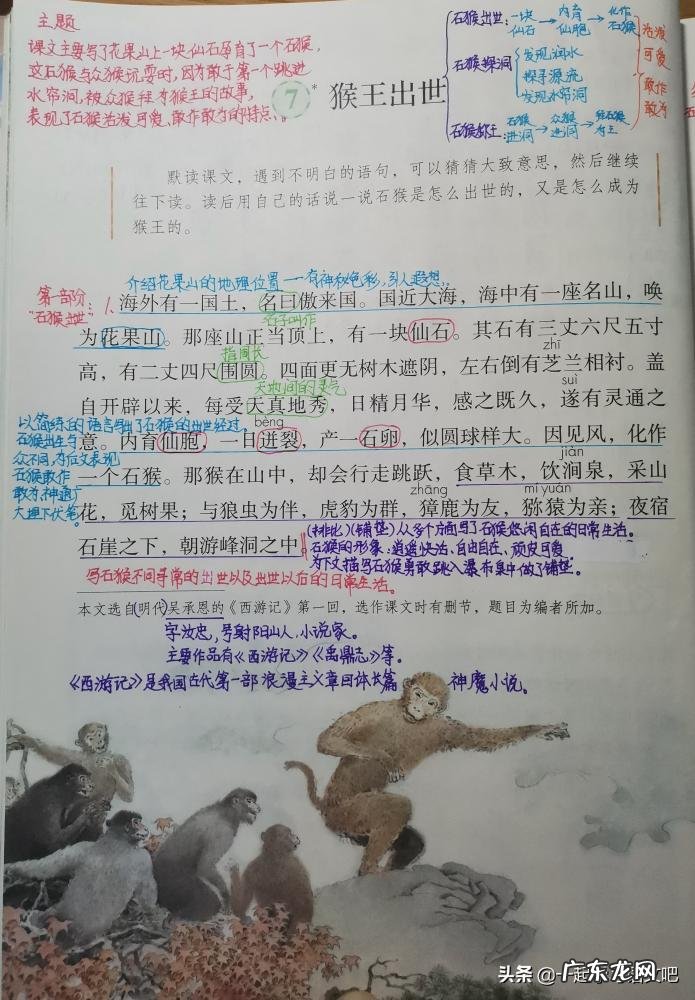 主题
课文主要写了花果山上一块仙石孕育了一个石猴,
这石猴与众猴玩耍时,因敢于第一个跳进
水帘洞,被众猴拜为猴王的故事,
表现了石猴活泼可爱、敢作敢为的特点。
石猴出世:一块仙石→内育仙胞→化作石猴
石猴探洞
发现涧水
探寻源流
发现水帘洞
石猴称王:石猴进洞→众猴进洞→拜石猴为王
活泼可爱
敢作敢为
7* 猴王出世
默读课文,遇到不明白的语句,可以猜猜大致意思,然后继续
往下读。读后用自己的话说一说石猴是怎么出世的,又是怎么成为
猴王的。
介绍花果山的地理位置——有神秘色彩,引人遐想。
第一部分:
“石猴出世”
1.海外有一国土,名曰傲来国。国近大海,海中有一座名山,唤
名字叫作
为花果山。那座山正当顶上,有一块仙石。其石有三丈六尺五寸
指周长
zhī
高,有二丈四尺围圆。四面更无树木遮阴,左右倒有芝兰相衬。盖
天地间的灵气
suì
自开辟以来,每受天真地秀,日精月华,感之既久,遂有灵通之
bèng
意。内育仙胞,一日迸裂,产一石卵,似圆球样大。因见风,化作
jiàn
一个石猴。那猴在山中,却会行走跳跃,食草木,饮涧泉,采山
zhāng mí yuán
花,觅树果;与狼虫为伴,虎豹为群,獐鹿为友,猕猿为亲;夜宿
石崖之下,朝游峰洞之中。
以简练的语言写出了石猴的出世经过,
石猴出生与
众不同,为后文表现
石猴敢作
敢为、神通广
大埋下伏笔。
(排比)(铺垫)从多个方面写了石猴悠闲自在的日常生活。
石猴的形象:逍遥快活、自由自在、顽皮可爱
为下文描写石猴勇敢跳入瀑布泉中做了铺垫。
写石猴不同寻常的出世以及出世以后的日常生活。
本文选自(明代)吴承恩的《西游记》第一回,选作课文时有删节,题目为编者所加。
字汝忠,号射阳山人,小说家。
主要作品有《西游记》《禹鼎志》等。
《西游记》是我国古代第一部浪漫主义章回体长篇神魔小说。
头条
广东龙网